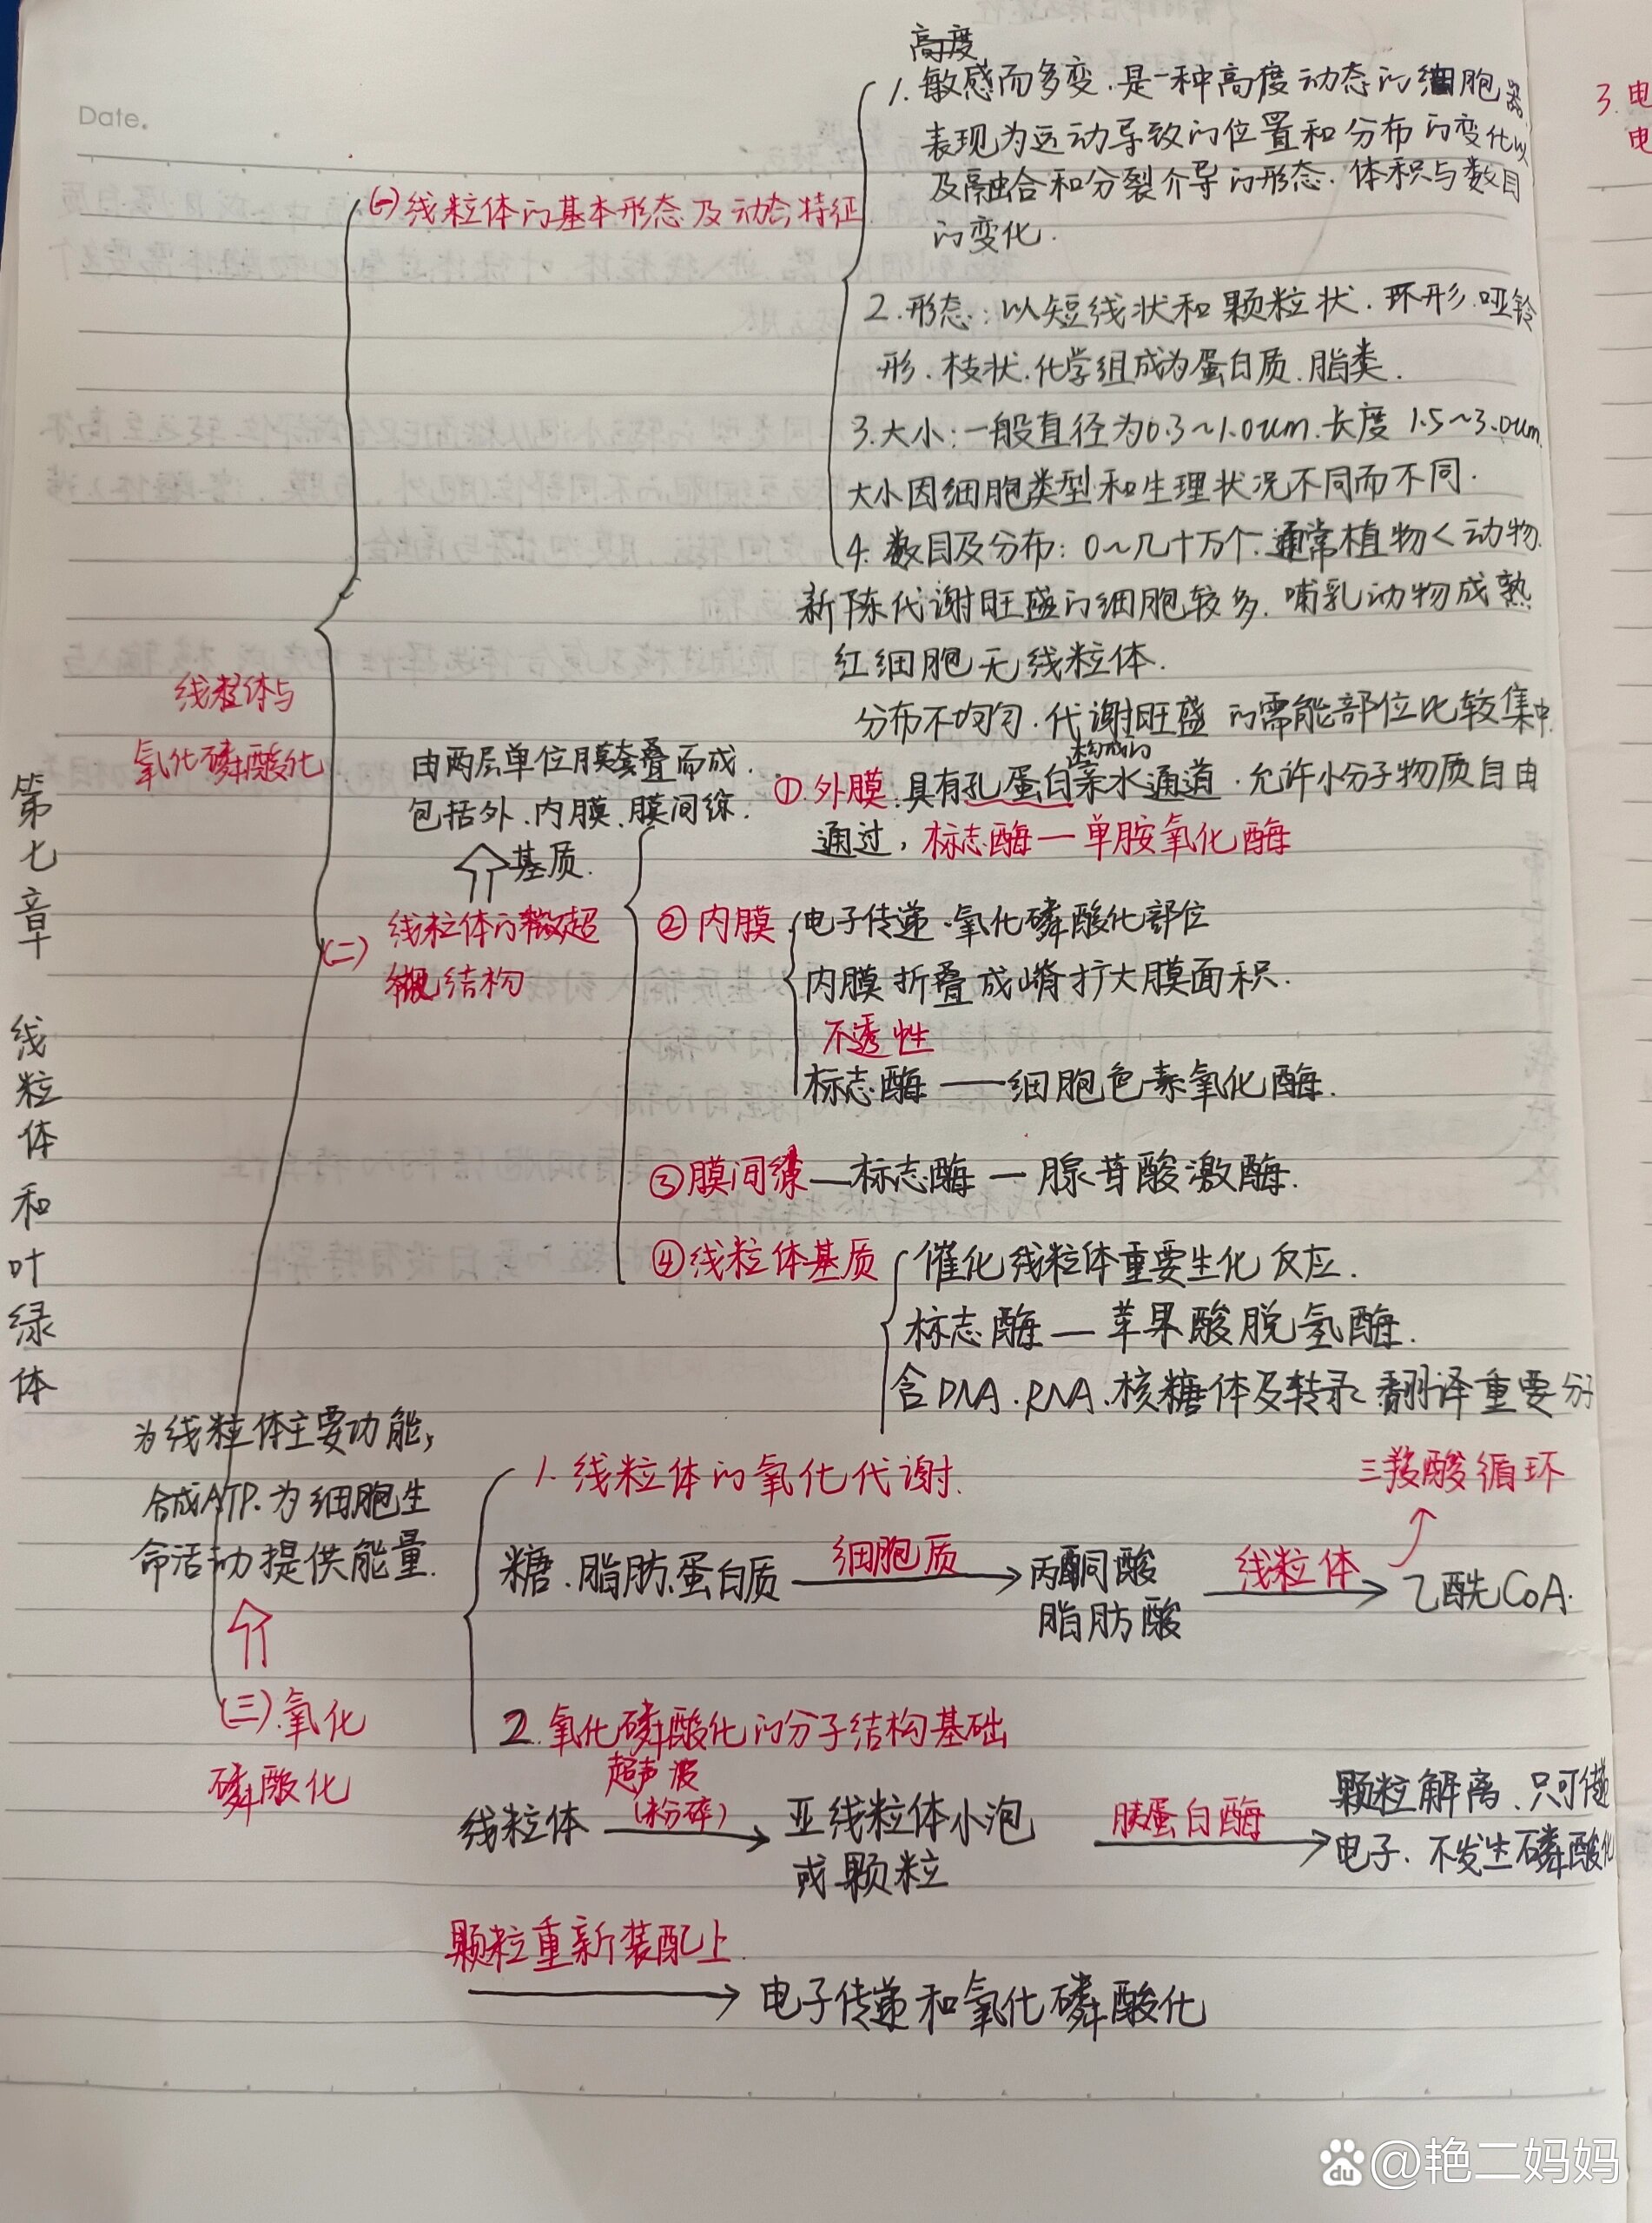 Date.
第七章 线粒体和叶绿体
线粒体与
氧化磷酸化
(一)线粒体的基本形态及动态特征
高度
1.敏感而多变.是一种高度动态的细胞器
表现为运动导致的位置和分布的变化以
及融合和分裂介导的形态.体积与数目
的变化.
2.形态:以短线状和颗粒状.环形.哑铃
形.枝状.化学组成为蛋白质.脂类.
3.大小:一般直径为0.3~1.0um.长度1.5~3.0um
大小因细胞类型和生理状况不同而不同.
4.数目及分布:0~几十万个.通常植物<动物.
新陈代谢旺盛的细胞较多.哺乳动物成熟
红细胞无线粒体.
分布不均匀.代谢旺盛的需能部位比较集中
由两层单位膜套叠而成.
包括外.内膜.膜间隙.
基质.
(二)线粒体的超
微结构
构成的
①.外膜:具有孔蛋白亲水通道.允许小分子物质自由
通过,标志酶—单胺氧化酶
②内膜
电子传递.氧化磷酸化部位
内膜折叠成嵴扩大膜面积.
不透性
标志酶——细胞色素氧化酶.
③膜间隙—标志酶—腺苷酸激酶.
④线粒体基质
催化线粒体重要生化反应.
标志酶—苹果酸脱氢酶.
含DNA.RNA.核糖体及转录翻译重要分子
为线粒体主要功能,
合成ATP.为细胞生
命活动提供能量.
(三).氧化
磷酸化
1.线粒体的氧化代谢.
三羧酸循环
糖.脂肪.蛋白质 细胞质→丙酮酸 线粒体→乙酰CoA.
脂肪酸
2.氧化磷酸化的分子结构基础
超声波
线粒体 (粉碎)→亚线粒体小泡 胰蛋白酶→颗粒解离.只可传递
或颗粒 电子.不发生磷酸化
颗粒重新装配上.
→电子传递和氧化磷酸化
3.电
电
du @艳二妈妈